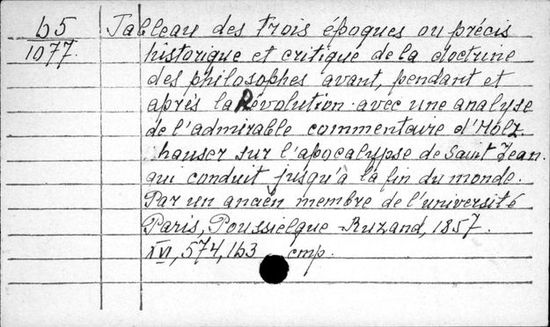 b5 Tableau des trois époques ou précis
1077. historique et critique de la doctrine
des philosophes avant, pendant et
après la Révolution avec une analyse
de l'admirable commentaire d'Holz-
hauser sur l'apocalypse de Saint Jean.
qui conduit jusqu'à la fin du monde.
Par un ancien membre de l'université
Paris, Poussielgue-Ruzand, 1857.
XVI, 574, 163 стр.